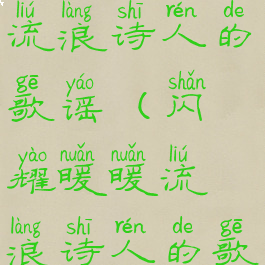 liú làng shī rén de
流浪诗人的
gē yáo shǎn
歌谣（闪
yào nuǎn nuǎn liú
耀暖暖流
làng shī rén de gē
浪诗人的歌